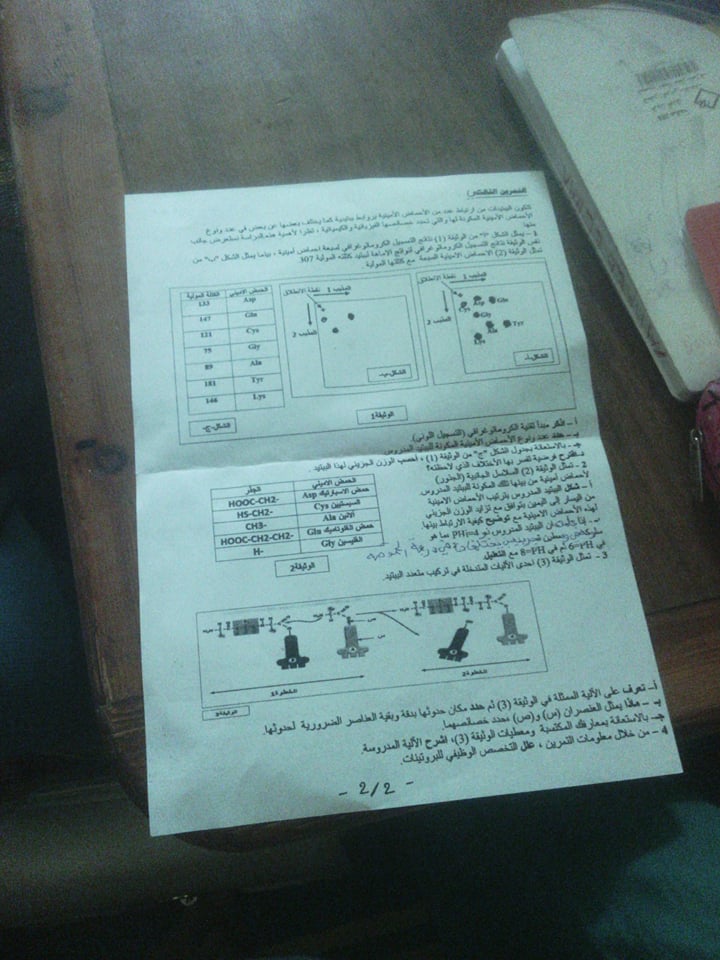 التمرين الثالث:
تتكون الببتيدات من ارتباط عدد من الأحماض الأمينية بروابط ببتيدية كما يختلف بعضها عن بعض في عدد ونوع
الأحماض الأمينية المكونة لها والتي تحدد خصائصها الفيزيائية والكيميائية ، نظرا لأهمية هذه الدراسة نستعرض جانب
منها
1 – يمثل الشكل "أ" من الوثيقة (1) نتائج التسجيل الكروماتوغرافي لسبعة أحماض أمينية ، بينما يمثل الشكل "ب" من
نفس الوثيقة نتائج التسجيل الكروماتوغرافي لنواتج الإماهة لببتيد كتلته المولية 307
تمثل الوثيقة (2) الأحماض الأمينية السبعة مع كتلتها المولية
المذيب 1 نقطة الانطلاق
المذيب 2
Cys Asp Glu
Gly
Ala Tyr
Lys
الشكل-أ-
المذيب 1 نقطة الانطلاق
المذيب 2
الشكل-ب-
الحمض الأميني الكتلة المولية
Asp 133
Glu 147
Cys 121
Gly 75
Ala 89
Tyr 181
Lys 146
الشكل-ج-
الوثيقة1
أ – اذكر مبدأ تقنية الكروماتوغرافي (التسجيل اللوني).
ب – حدد عدد ونوع الأحماض الأمينية المكونة للببتيد المدروس
جـ – بالاستعانة بجدول الشكل "ج" من الوثيقة (1) ، احسب الوزن الجزيئي لهذا الببتيد .
د – اقترح فرضية تفسر بها الاختلاف الذي لاحظته؟
2 – تمثل الوثيقة (2) السلاسل الجانبية (الجذور)
لأحماض أمينية من بينها تلك المكونة للببتيد المدروس.
أ – شكل الببتيد المدروس بترتيب الأحماض الأمينية
من اليسار إلى اليمين بتوافق مع تزايد الوزن الجزيئي
لهذه الأحماض الأمينية مع توضيح كيفية الارتباط بينها.
ب – إذا علمت أن الببتيد المدروس ذو PHi=4 فما هو
سلوكه في وسطين
في PH=6 ثم في PH=8 مع التعليل.
الحمض الأميني الجذر
حمض الأسبارتيك Asp HOOC-CH2-
السيستيين Cys HS-CH2-
ألانين Ala CH3-
حمض الغلوتاميك Glu HOOC-CH2-CH2-
الغليسين Gly H-
الوثيقة2
3 – تمثل الوثيقة (3) احدى الآليات المتدخلة في تركيب متعدد الببتيد.
س
ص
الخطوة1
الخطوة2
الوثيقة3
أ – تعرف على الآلية الممثلة في الوثيقة (3) ثم حدد مكان حدوثها بدقة وبقية العناصر الضرورية لحدوثها.
ب – ماذا يمثل العنصران (س) و(ص) محدد خصائصهما.
جـ – بالاستعانة بمعارفك المكتسبة ومعطيات الوثيقة (3)، اشرح الآلية المدروسة.
4 – من خلال معلومات التمرين ، علل التخصص الوظيفي للبروتينات.
- 2/2 -